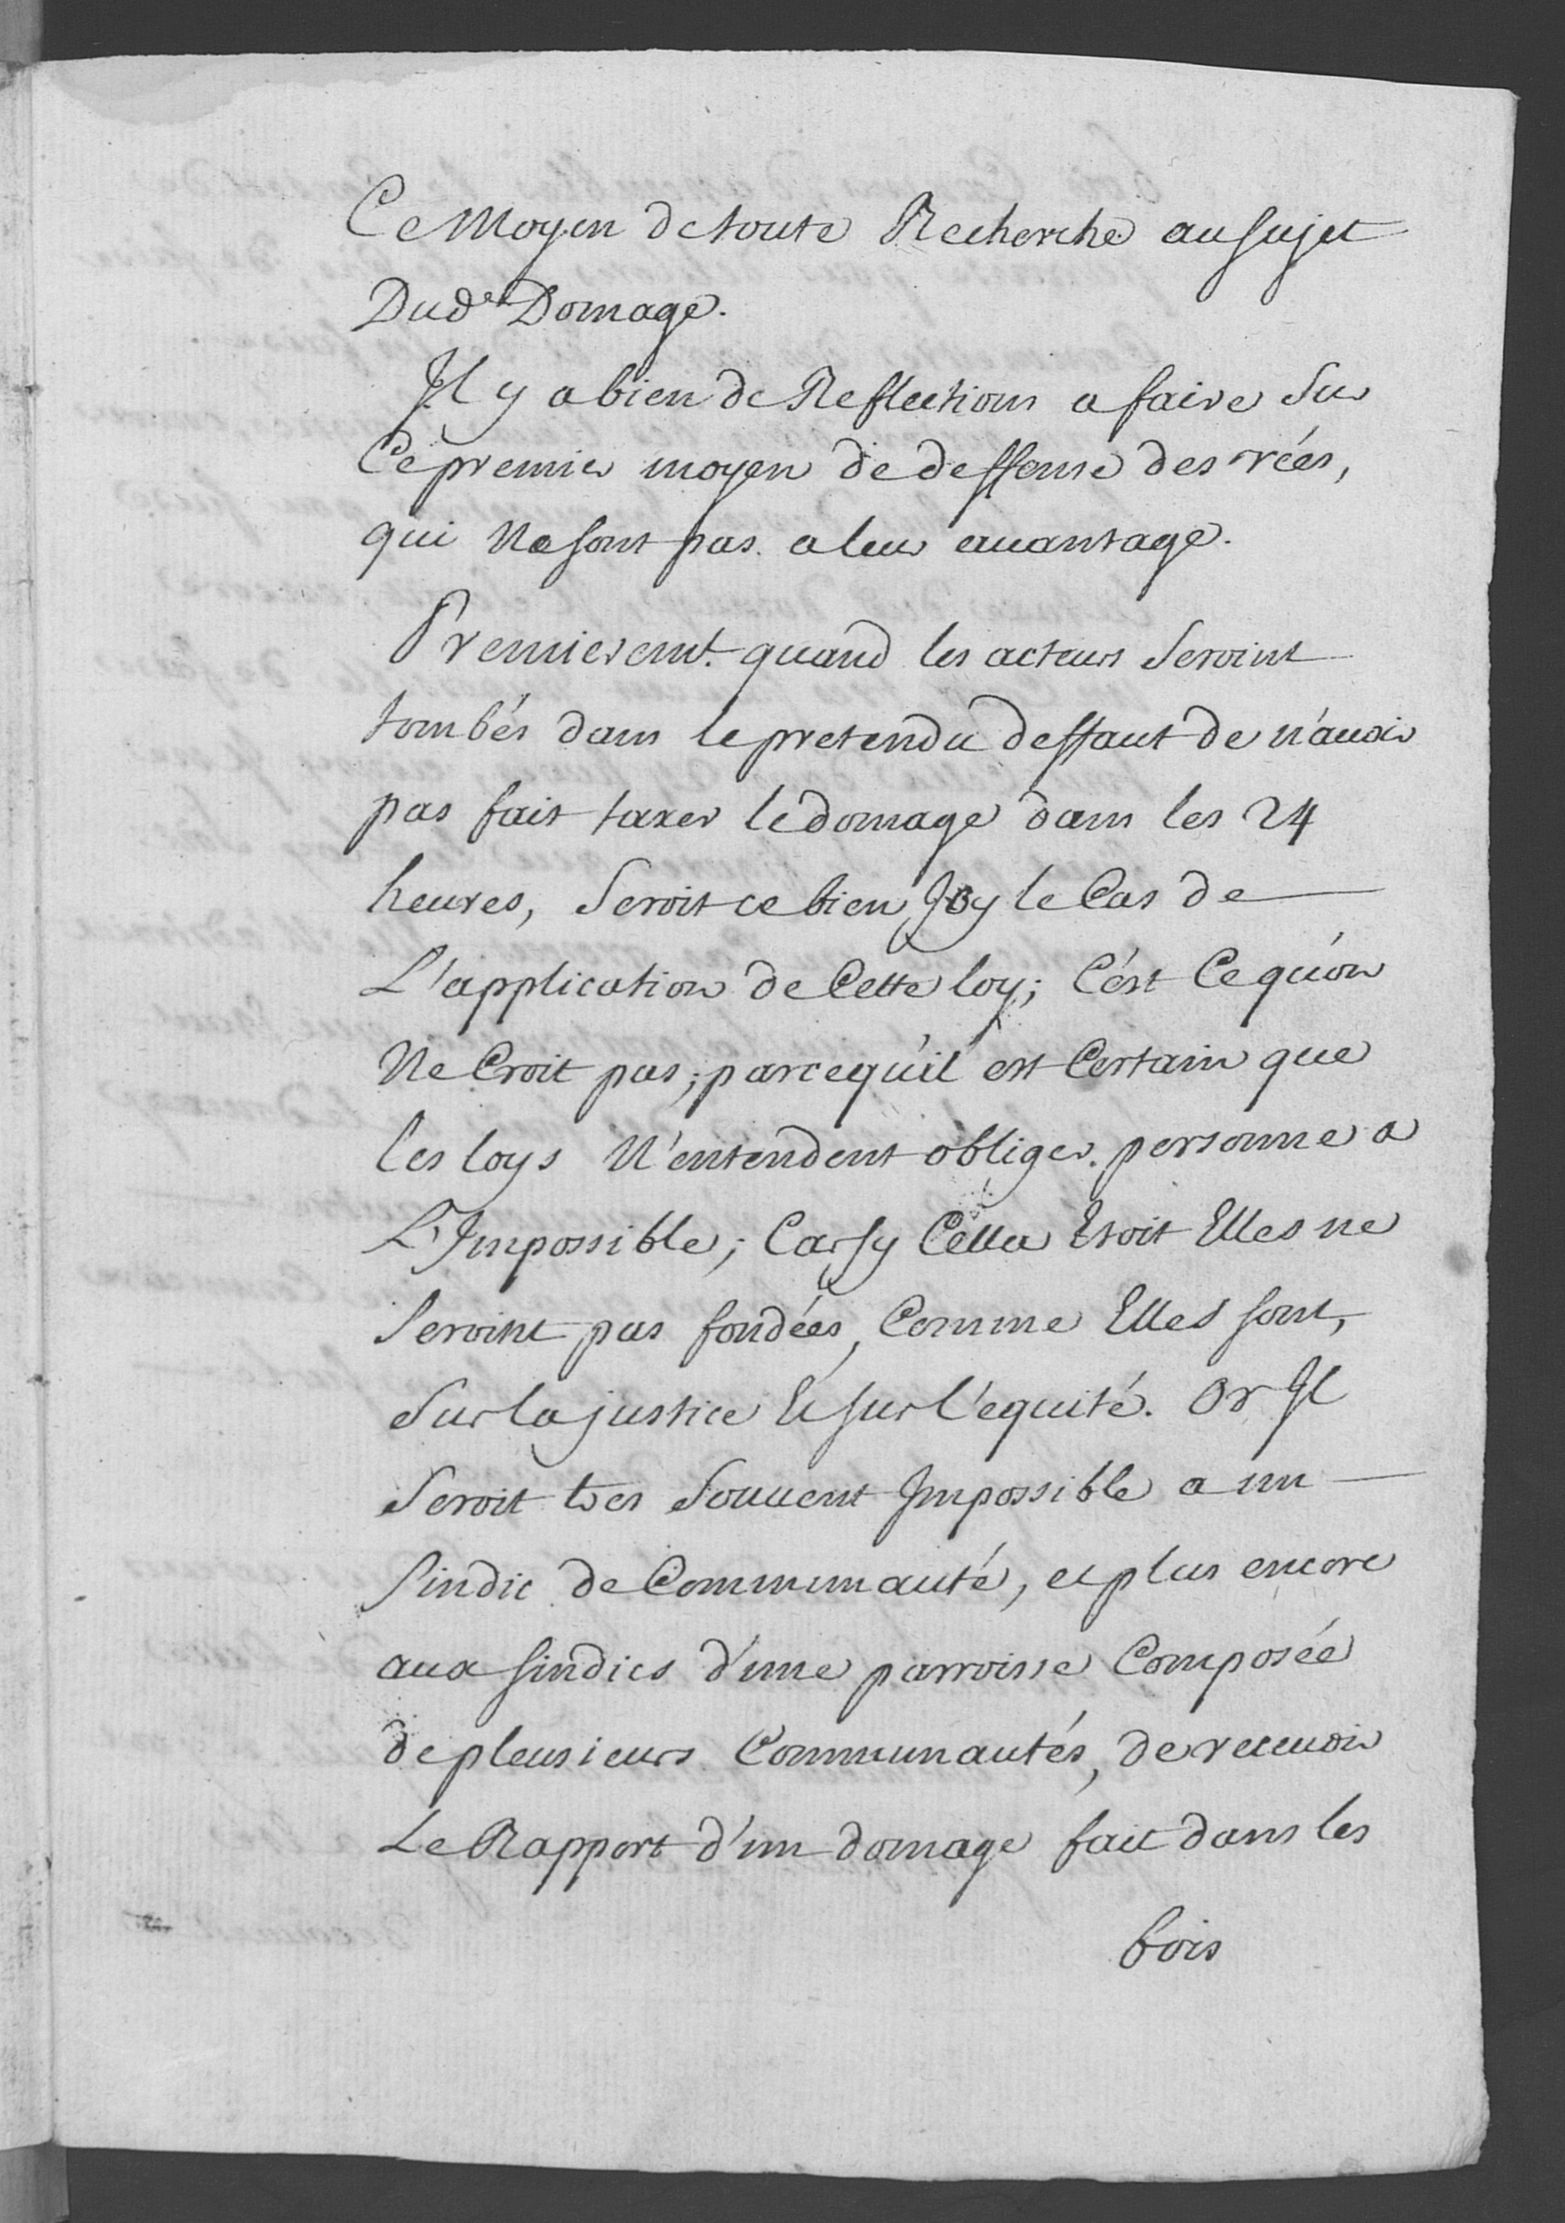 Ce Moyen de toute Recherche au sujet
Dud.t Domage.
Il y a bien de Reflections a faire sur
Ce premier moyen de deffense des rées,
qui Ne sont pas a leur auantage.
Premieremt. quand les acteurs seroint
tombés dans le pretendu deffaut de n'auoir
pas fait taxer le domage dans les 24
heures, seroit ce bien Icy le Cas de
L'application de Cette loy; C'est Ce qu'on
Ne Croit pas; parcequ'il est Certain que
les loys N'entendent obliger personne a
L'Impossible; Car sy Cella Etoit Elles ne
seroint pas fondées, Comme Elles sont,
sur la justice Et sur l'equité. Or Il
seroit tres souuent Impossible a un
sindic de Communauté, et plus encore
aux sindics d'une parroisse Composée
de pleusieurs Communautés, de receuoir
Le Rapport d'un domage fait dans les
bois